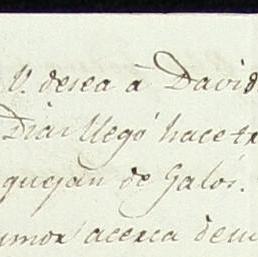 V. desea à David
Diaz llegó hace tr
quejan de Galos.
umor acerca de un